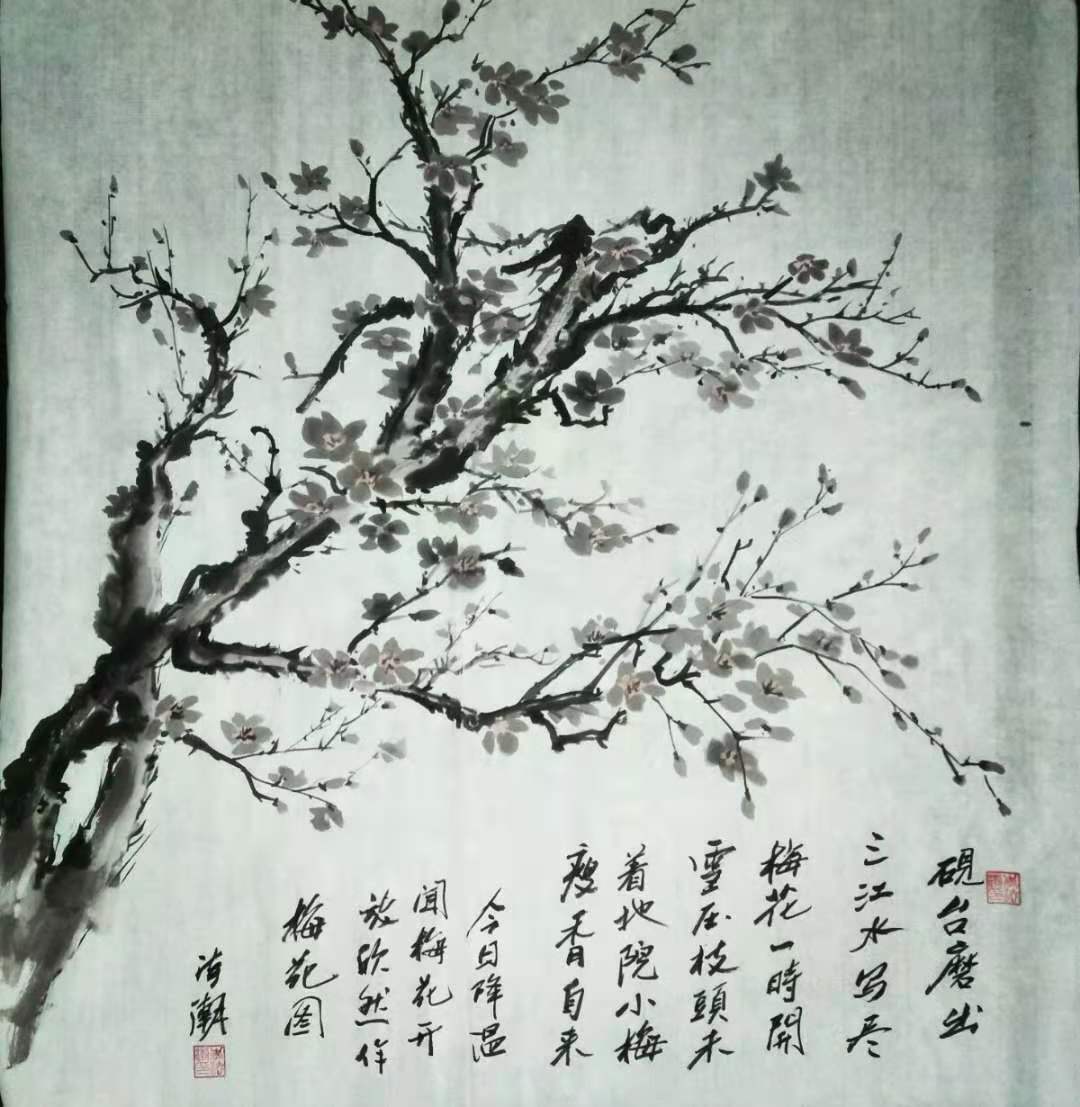 硯台磨出
三江水写尽
梅花一時開
雪压枝頭未
着地院小梅
瘦香自来
今日降温
闻梅花开
放欣然作
梅花图
海潮